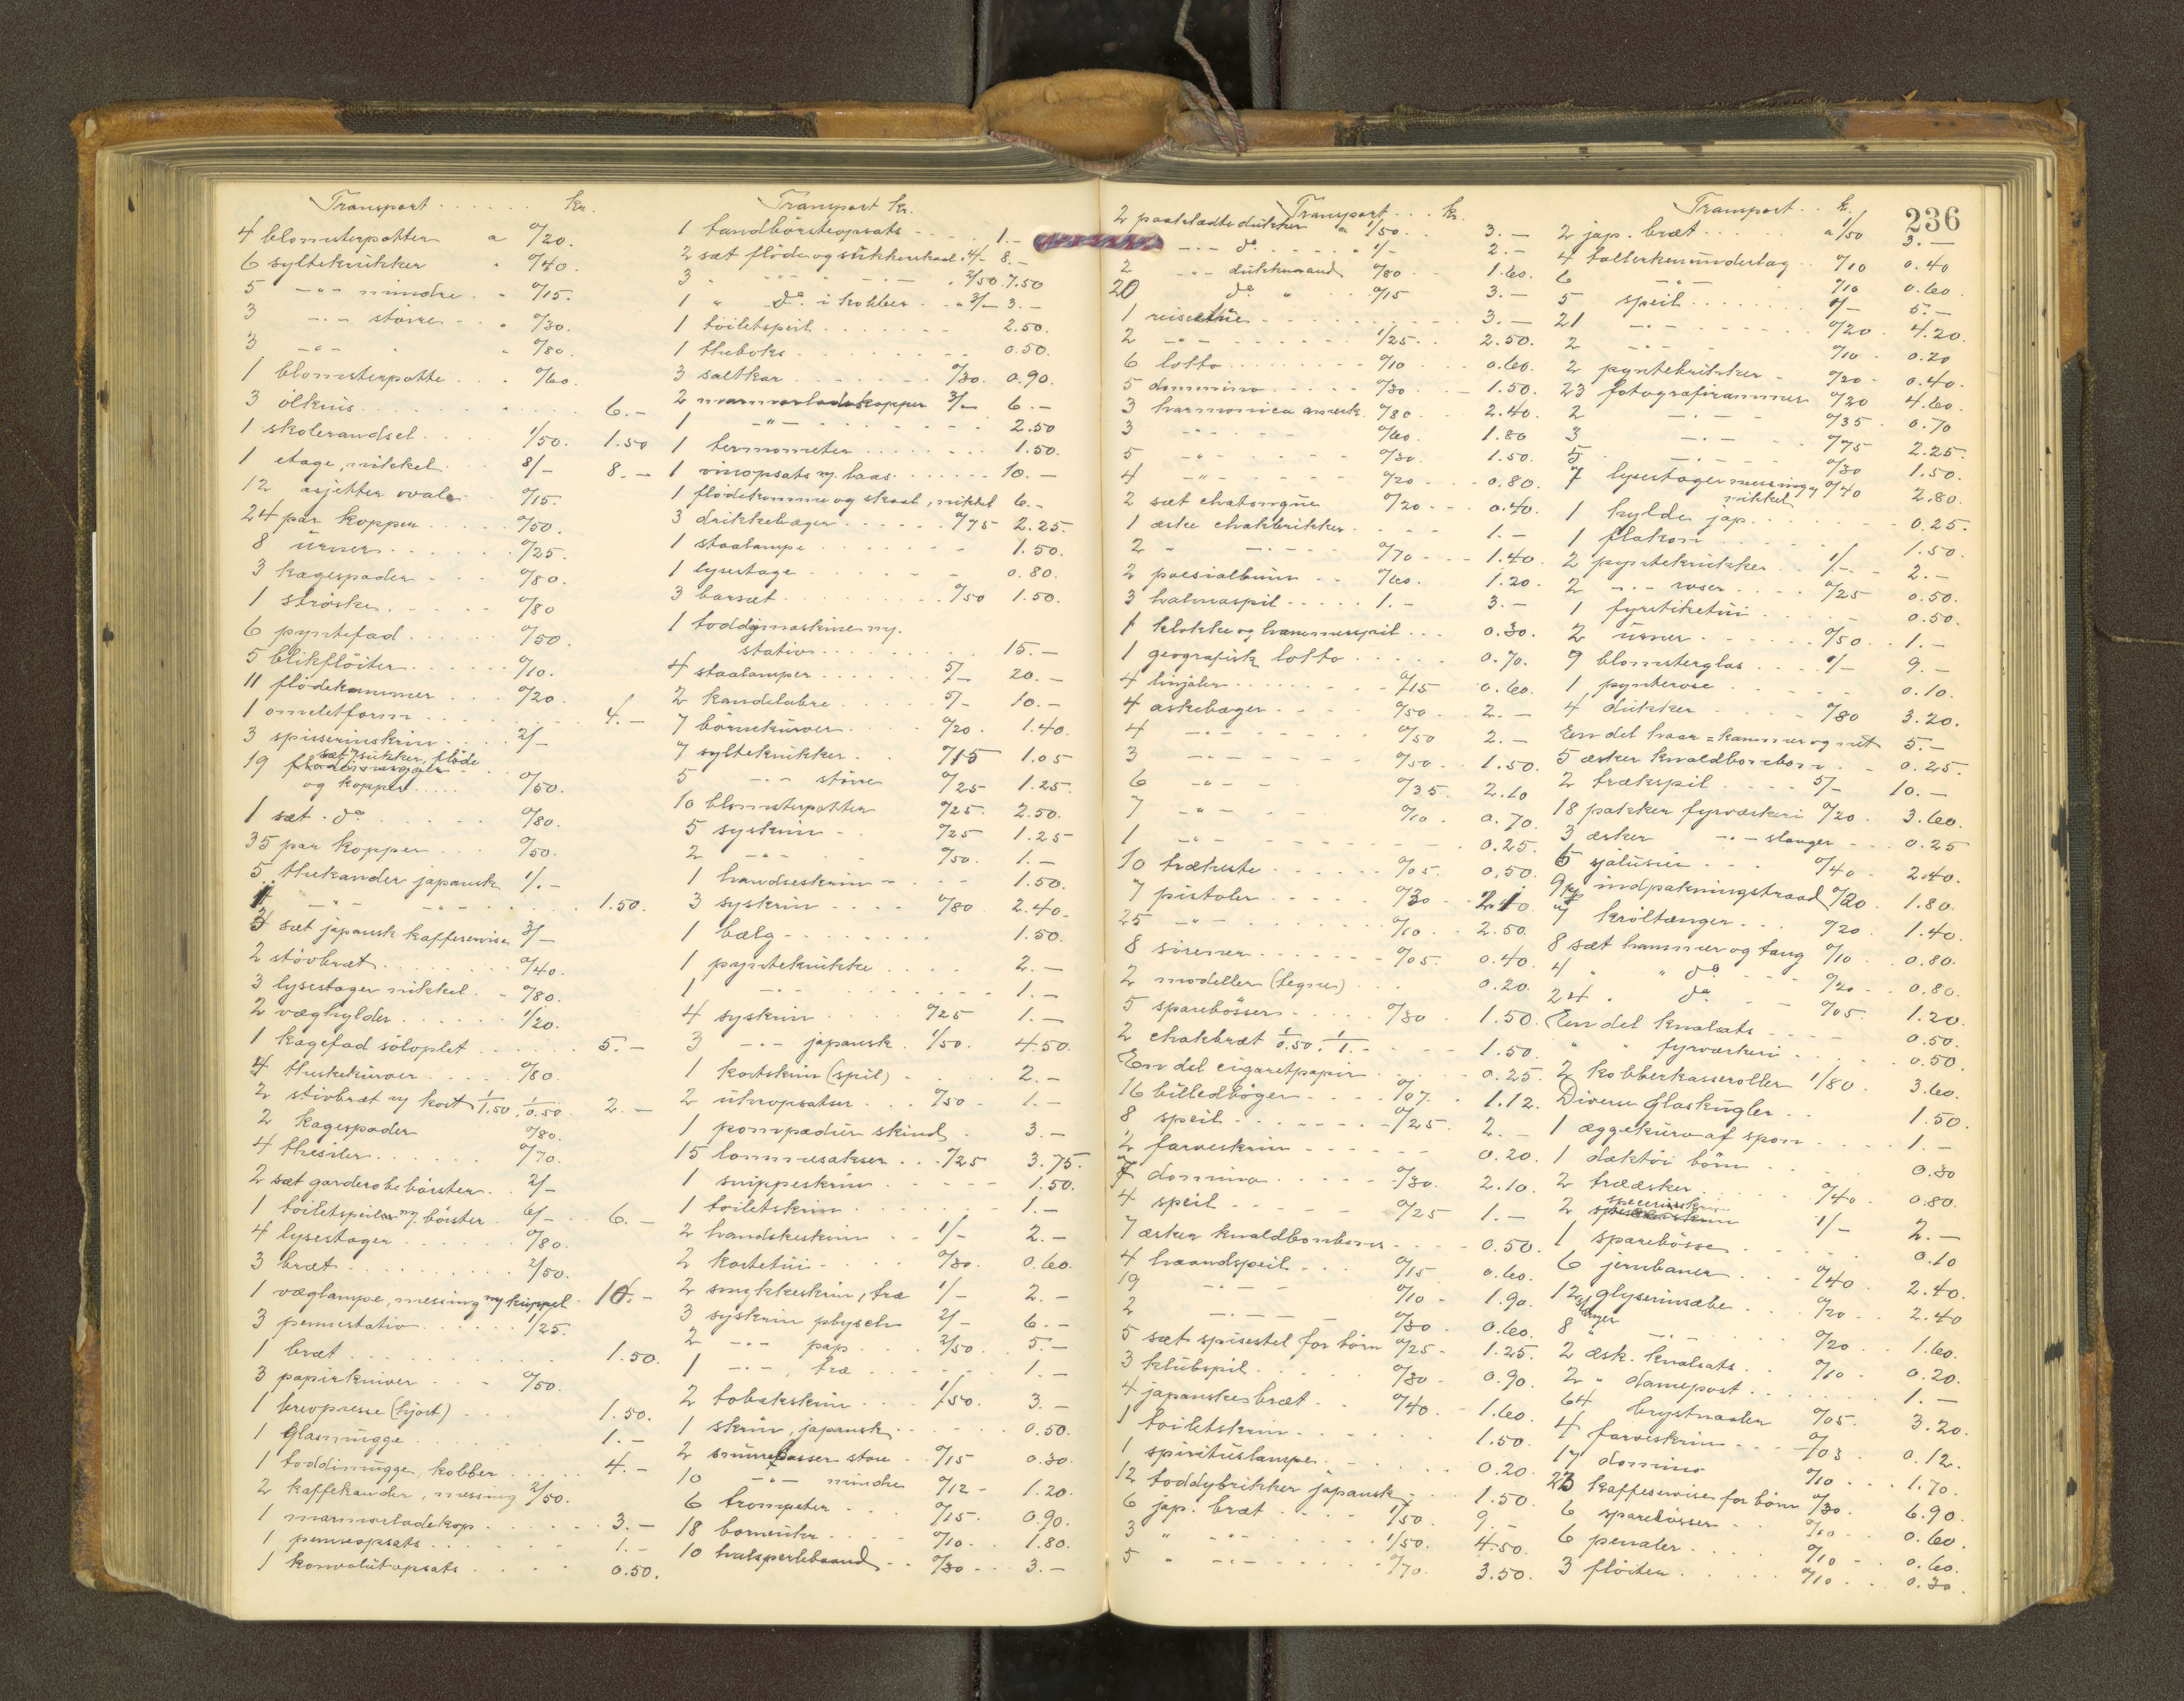 Transport . . . . . . kr.
4 blomsterpotter a 0/20.
6 syltekrukker " 0/40.
5 -"- mindre . " 0/15.
3 -"- større - . " 0/30.
3 -"- . " 0/80.
1 blomsterpotte . . " 0/60.
3 ølkrus . . . . . . . 6.-
1 skolerandsel . . . 1/50. 1.50
1 etage, nikkel . . 8/- 8.-
12 asjetter ovale . 0/15.
24 par kopper . . . . 0/50.
8 urner . . . . . 0/25.
3 kagespader - . . 0/80.
1 strøske . . . . 0/80
6 pyntefad . . . . 0/50.
5 blikfløiter . . . . 0/10.
11 flødekanner . . . 0/20.
1 omeletform . . . . . . 4.-
3 spisserinskrin . . . 2/-
19 sæt m/ sukker, fløde
og kopper . . . . 0/50.
1 sæt . do . . . . 0/80.
35 par kopper . . . 0/50.
5 thekander japansk 1/.-
1 -"- -"- . . . . 1.50.
3 sæt japansk kaffeservise 3/-
2 støvbræt . . . . . . 0/40.
3 lysestager nikkel . - 0/80.
2 væghylder . . . . . 1/20.
1 kagefad sølvplet . . . . . 5.-
4 theskekurver . . . . 0/80.
2 støvbræt m/ kost 1/1.50. 1/0.50. 2.-
2 kagespader 0/80.
4 thesiler . . . . . . 0/70.
2 sæt garderobebørster . . 2/-
1 toiletspeil m/ børster . 6/- . . 6.-
4 lysestager . . . . . . 0/80.
3 bræt . . . . . . . . . 2/50.
1 væglampe, messing m/ kuppel . 10.-
3 pennestativ . . . . . . 1/25.
1 bræt . . . . . . . . . . 1.50.
3 papirkniver . . - 0/50.
1 brevpresse (hjort) . . . 1.50.
1 glasmugge . . . . . . 1.-
1 toddimugge, kobber . . . . 4.-
2 kaffekander, messing 2/50.
1 marmorladekop . . . . . . 3.-
1 penneopsats . . . . . . . 1.-
1 konvolutopsats . . . . 0.50.
Transport kr.
1 tandbørsteopsats - . . . 1.-
2 sæt fløde og sukkerskaal . 4/- 8.-
3 " -"- -"- . 2/50. 7.50
1 " do. i kobber . . " 3/- 3.-
1 toiletspeil . . . . . . . 2.50.
1 theboks . . . . . . . - 0.50.
3 saltkar . . . . . . . 0/30. 0.90.
2 marmorladekopper 3/- 6.-
1 -"- . . . . . . . . 2.50
1 termometer . . . . . . . 1.50.
1 vinopsats m/ laas . . . . . . 10.-
1 flødekumme og skaal, nikkel 6.-
3 drikkebæger . . . . . . 0/75 2.25.
1 staalampe . . . . . . . - 1.50.
1 lysestage . . . . . . - 0.80.
3 barsæt . . . . . . . . 0/50 1.50.
1 toddymaskine m/
stativ . . . . . . . . . 15.-
4 staalamper . . . . . . . 5/- 20.-
2 kandelabre . . . . . 5/- 10.-
7 børnekurver . . . . . 0/20. 1.40.
7 syltekrukker . . . 0/15 1.05
5 -"- større 0/25 1.25.
10 blomsterpotter 0/25. 2.50.
5 syskrin - . . 0/25 1.25
2 -"- . . 0/50. 1.-
1 handseskrin - . . - - 1.50.
3 syskrin . . . . . 0/80 2.40.
1 bælg - . . . . . . . 1.50.
1 pyntekrukke . . . . 2.-
1 -"- . . . . . . . 1.-
4 syskrin . . . . . 0/25 1.-
3 -"- japansk . 1/50. 4.50.
1 kortskrin (spil) . . . . 2.-
2 uhropsatser . . . 0/50 - 1.-
1 pompadur skind . 3.-
15 lommesakser . . . 0/25 3.75.
1 snippeskrin . . - - - - 1.50.
1 toiletskrin . . . . . . . . 1.-
2 handskeskrin . - 1/- 2.-
2 kortetui - . . . . 0/30. 0.60.
2 smykkeskrin, træ 1/- 2.-
3 syskrin plysch 2/- 6.-
2 -"- pap . . . 2/50. 5.-
1 -"-, træ . . . . . . . 1.-
2 tobakskrin . . . 1/50. 3.-
1 skrin, japansk . . . . . . 0.50.
2 snurrebasser store . . 0/15 0.30.
10 -"- mindre 0/12 - 1.20.
6 trompeter . . . 0/15. 0.90.
18 barneuhr . . . . 0/10. . 1.80.
10 halsperlebaand . . 0/30 . . . 3.-
Transport . . . kr.
2 paaklædte dukker a 1/50. . 3.-
-"- do. . . . . " 1/- 2.-
2 -"- dukkemand 0/80 . . 1.60.
20 do " . . . 0/15 3.-
1 reiseetui . . . . . . . . . 3.-
2 -"- - - . . . . 1/25. . 2.50.
6 lotto . . . . . . . 0/10 . . . 0.60.
5 dommino . . . . . 0/30 . . . 1.50.
3 harmonica amerk. 0/80 . . . 2.40.
3 -"- . . . 0/60. 1.80
5 -"- . . . 0/30. 1.50.
4 -"- - . . . 0/20 . . . 0.80.
2 sæt chatongue 0/20 - - - 0.40.
1 æske chakbrikker . . . . 1.-
2 " -"- - - 0/70 - - 1.40.
2 poesialbum . . 0/60. 1.20.
3 halmaspil . . . . . 1.- 3.-
1 klokke og hammerspil . . . 0.30.
1 geografisk lotto . . . . . 0.70.
4 linjaler . . . . . . . - 0/15 0.60.
4 askebæger . . . . 0/50. . 2.-
4 -"- . . . . 0/50 2.-
3 -"- - . . . . 0/50. . 1.50.
6 -"- - - 0/35. 2.10
7 -"- - 0/10. 0.70.
1 -"- - - - - - - . 0.25.
10 trækuste . . . . . . 0/05. 0.50.
7 pistoler . . . . . . 0/30 - 2.10.
25 -"- . . . . . . 0/10. . . 2.50.
8 sirener . . . . . . - 0/05. 0.40.
2 modeller (tegne) . . . 0.20.
5 sparebøsser . . . . . 0/30 . 1.50.
2 chakbræt 1/0.50. 1/1.- . . . 1.50.
En del cigaretpapir . . . . 0.25.
16 billedbøger . . . . 0/07. . 1.12.
8 speil . . . . . . . - 0/25. 2.-
2 farveskrin - - - - - - 0.20.
7 domino . . . . . 0/30. 2.10.
4 speil . . . . . . 0/25 1.-
7 æsker knaldbonbons . . . . 0.50.
4 haandspeil . . . 0/15 0.60.
19 -"- . . . 0/10 - 1.90.
2 -"- - - 0/30 0.60.
5 sæt spisestel for børn 0/25 - 1.25.
3 klubspil . . . . . . 0/30 - 0.90.
4 japanske bræt . . 0/40 . 1.60.
1 toiletskrin . . . . . . . . 1.50.
1 spirituslampe - . . . . . 0.20.
12 toddybrikker japansk . 1.50.
6 jap. bræt . . . . 1/50. 9.-
3 " -"- . . . . . 1/50. 4.50.
5 " -"- - . . . . 0/70. 3.50.
236
Transport . . kr.
2 jap. bræt . . . . . a 1/50 3.-
4 tallerkenunderlag . 0/10 0.40
6 -"- 0/10 0.60.
5 speil . . . . . . 1/- 5.-
21 -"- . . . . . . 0/20 . 4.20.
2 -"- . . 0/10 - 0.20
2 pyntekrukker - 0/20 - 0.40.
23 fotografirammer 0/20 4.60.
2 -"- . 0/35 . 0.70
3 -"- - 0/75 2.25.
5 -"- - 0/30 1.50.
7 lysestager messing og 0/40 2.80.
nikkel
1 hylde jap. . . . . . - 0.25.
1 flakon . . . . . . . 1.50.
2 pyntekrukker . . 1/- . 2.-
2 -"- vaser . . . . 0/25 0.50.
1 fyrstiketui . . . . . . 0.50.
2 urner - . . . . . . 0/50 . . 1.-
9 blomsterglas . . . . 1/- 9.-
1 pynterose . . . . . . 0.10.
4 dukker . . . . . 0/80 3.20.
En del haar=kammer og net 5.-
5 æsker knaldbonbon . . 0.25.
2 trækspil . . . . . 5/- 10.-
18 pakker fyrverkeri 0/20 . 3.60.
3 æsker -"- slanger . . . 0.25
6 sjalusier . . . 0/40 . 2.40.
9 pk indpakningstraad 0/20 . 1.80.
7 krøltænger . . . 0/20. 1.40.
8 sæt hammer og tang 0/10 . 0.80.
4 " " do . . . 0/20 . . 0.80.
24 . do . - 0/05. 1.20.
En del knalsats . - . 0.50.
" " fyrverkeri . . . . . 0.50.
2 kobberkasseroller 1/80. 3.60.
Diverse glaskugler . . 1.50.
1 æggekurv af spon . . . . 1.-
1 dæktøi børn . . . 0.30
2 trææsker . . . . . 0/40. 0.80.
2 specerieskrin 1/- 2.-
1 sparebøsse . . . . . . 0.10
6 jernbaner . . . 0/40. 2.40.
12 st glyserinsæbe . . . 0/20 . . 2.40
8 " -"- . . 0/20 . . 1.60.
2 æsk. knalsats . . 0/10 . 0.20.
2 " damepost . . . . . 1.-
64 brystnaaler 0/05. 3.20.
4 farveskrin . . - 0/03 . 0.12.
17 domino 0/10 . . 1.70.
23 kaffeservise for børn 0/30. 6.90.
6 sparebøsser . . 0/10 . . 0.60.
6 penaler . . . . 0/10 - . 0.60.
3 fløiter . . . . . . 0/10 . . 0.30.